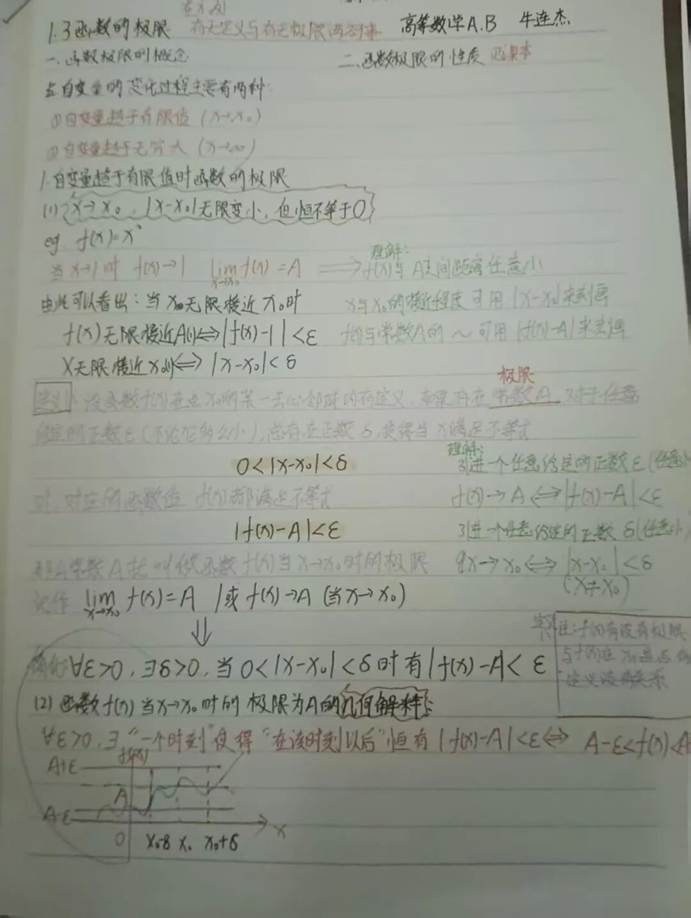 1.3 函数的极限 有无定义与有无极限两回事 高等数学A.B 牛连杰
一.函数极限的概念 二.函数极限的性质 见课本
自变量的变化过程主要有两种:
①自变量趋于有限值 (x→x₀)
②自变量趋于无穷大 (x→∞)
1.自变量趋于有限值时函数的极限
(1) x→x₀, |x-x₀|无限变小, 但恒不等于0
eg f(x)=x
当x→1时 f(x)→1 lim x→x₀ f(x)=A ⟹ 理解: f(x)与A之间距离任意小
由此可以看出: 当x无限接近x₀时 x与x₀的接近程度可用|x-x₀|来刻画
f(x)无限接近A⟺|f(x)-1|<ε f(x)与常数A的~可用|f(x)-A|来刻画
x无限接近x₀⟺|x-x₀|<δ
极限
设函数f(x)在点x₀的某一去心邻域内有定义, 如果存在常数A, 对于任意
给定的正数ε(不论它多么小), 总存在正数δ, 使得当x满足不等式
0<|x-x₀|<δ 理解: 引进一个任意给定的正数ε(任意小
时, 对应的函数值f(x)都满足不等式 f(x)→A⟺|f(x)-A|<ε
|f(x)-A|<ε 引进一个任意给定的正数δ(任意小
那么常数A就叫做函数f(x)当x→x₀时的极限 x→x₀⟺|x-x₀|<δ
(x≠x₀)
记作 lim x→x₀ f(x)=A /或 f(x)→A (当x→x₀)
⇓
注:f(x)有没有极限
与f(x)在x₀是否有
定义没有关系
∀ε>0, ∃δ>0, 当0<|x-x₀|<δ时有|f(x)-A|<ε
(2) 函数f(x)当x→x₀时的极限为A的几何解释:
∀ε>0, ∃"一个时刻"使得"在该时刻以后"恒有|f(x)-A|<ε⟺A-ε<f(x)<A
f(x)
A+ε
A
A-ε
0 x₀-δ x₀ x₀+δ x